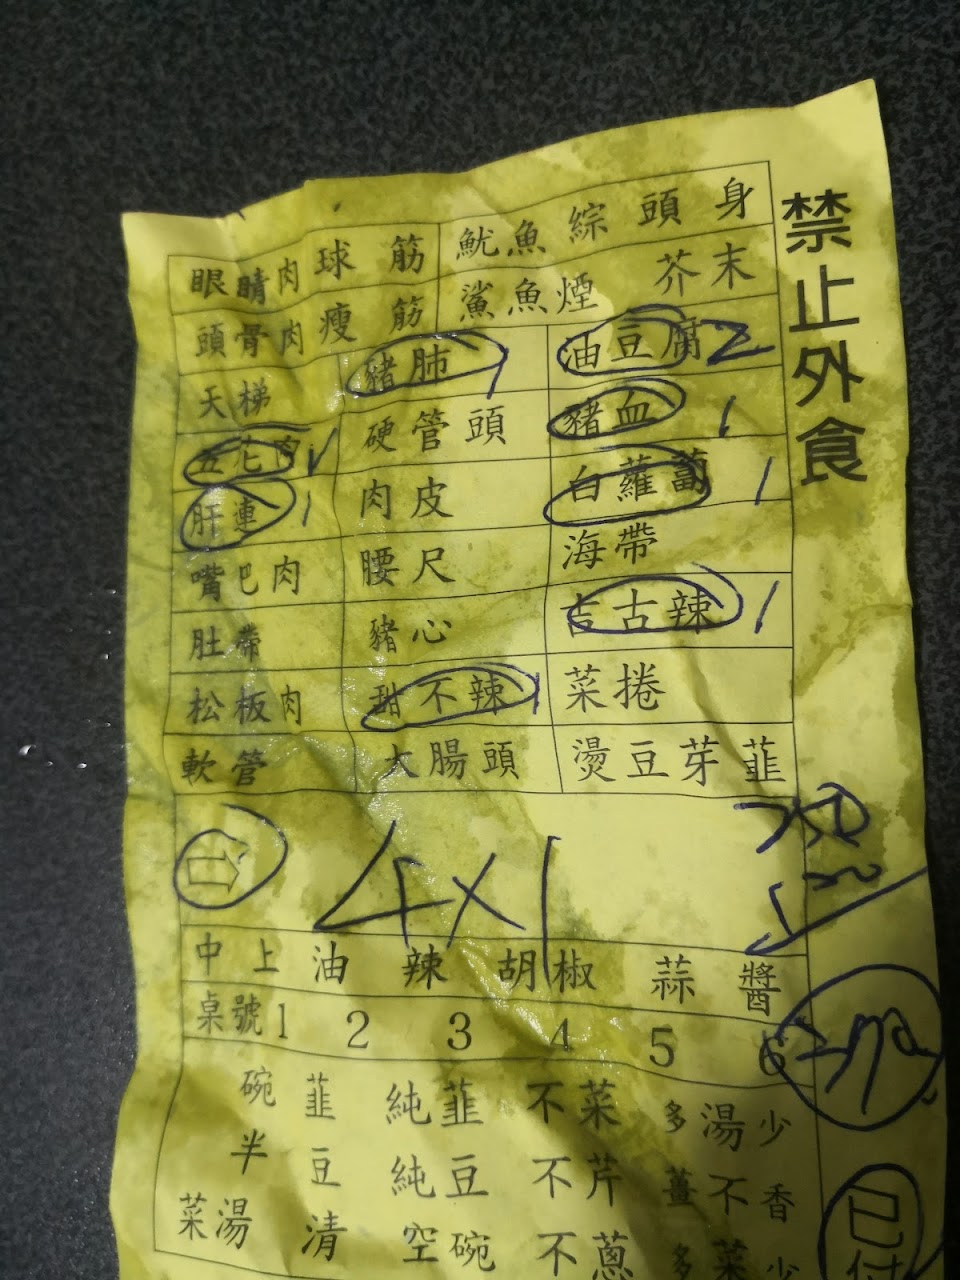 禁止外食
眼睛肉 球 筋 魷魚 綜 頭 身
頭骨肉 瘦 筋 鯊魚煙 芥末
天梯 豬肺 1 油豆腐 2
五花肉 1 硬管頭 豬血 1
肝連 1 肉皮 白蘿蔔 1
嘴巴肉 腰尺 海帶
肚帶 豬心 吉古辣 1
松板肉 甜不辣 1 菜捲
軟管 大腸頭 燙豆芽 韮
4×1
中 上 油 辣 胡椒 蒜 醬
桌號 1 2 3 4 5 6
碗 韮 純韮 不菜 多湯少
半 豆 純豆 不芹 薑不香
菜湯 清 空碗 不蔥 多菜少
已付